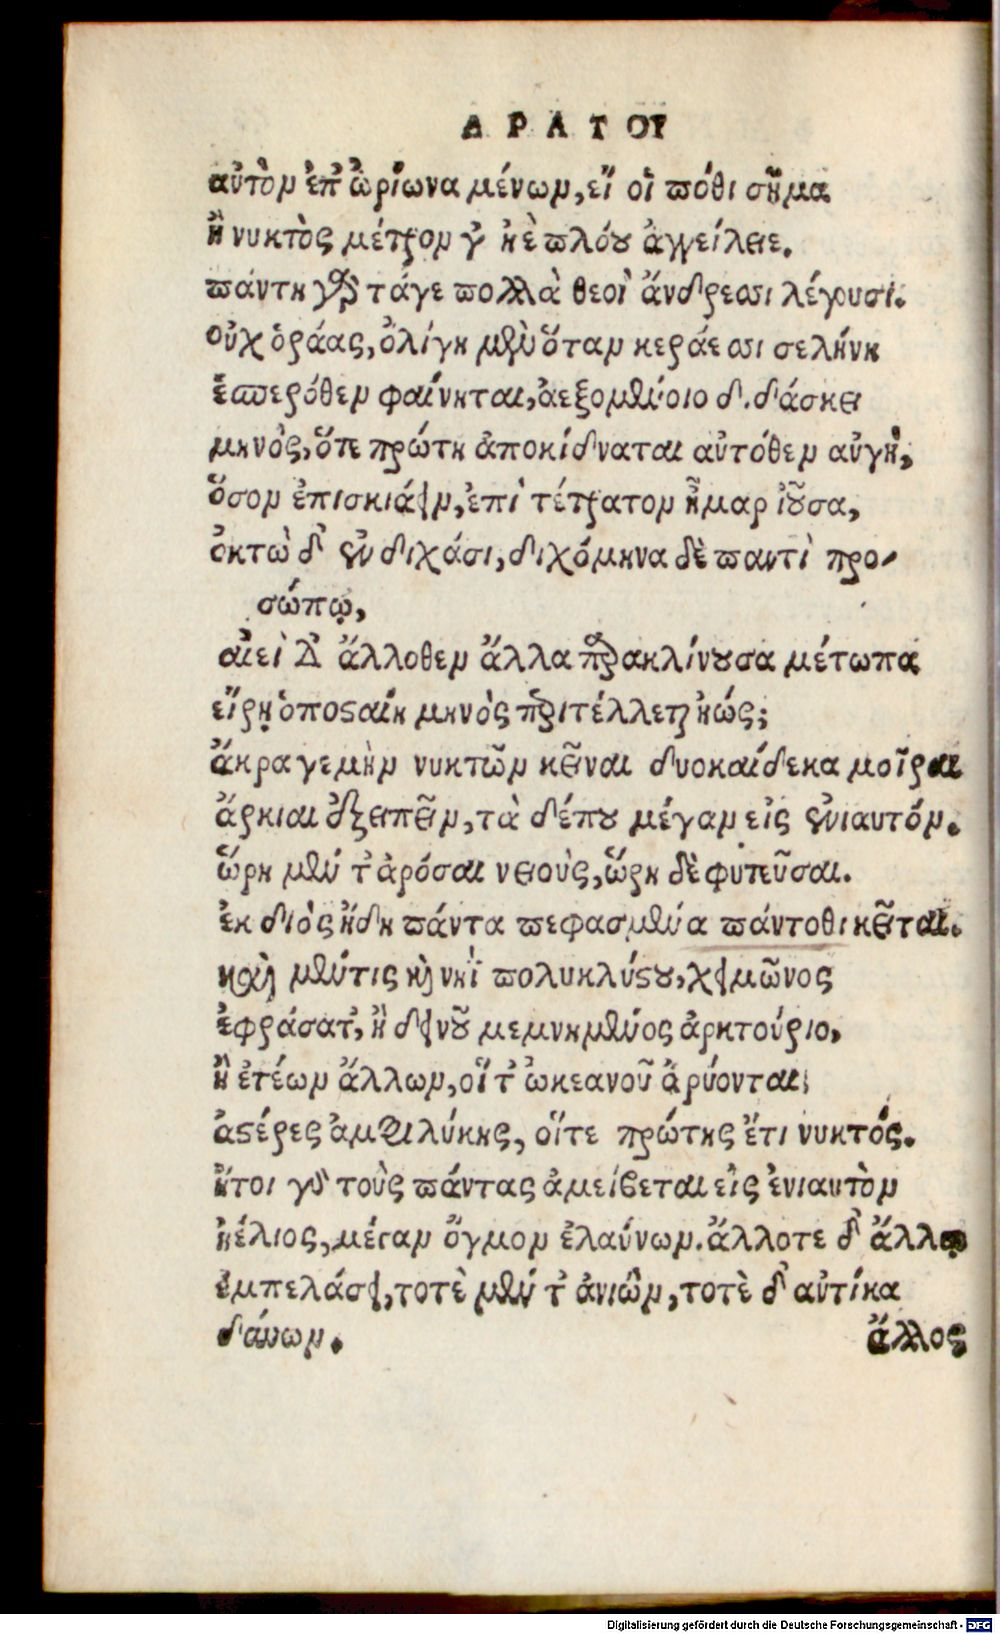 ΑΡΑΤΟΥ
αὐτὸν ἐπ' ὠρίωνα μένων, εἴ οἱ πόθι σῆμα
ἢ νυκτὸς μέτρον γ' ἠὲ πλόου ἀγγείλειε.
πάντη γὰρ τάγε πολλὰ θεοὶ ἄνδρεσσι λέγουσι.
οὐχ ὁράας, ὀλίγη μὲν ὅταν κεράεσσι σελήνη
ἑσπερόθεν φαίνηται, ἀεξομένοιο διδάσκει
μηνὸς, ὅτε πρώτη ἀποκίδναται αὐτόθεν αὐγή,
ὅσον ἐπισκιάειν, ἐπὶ τέτρατον ἦμαρ ἰοῦσα,
ὀκτὼ δ' ἐν διχάσι, διχόμηνα δὲ παντὶ προ-
σώπῳ,
αἰεὶ δ' ἄλλοθεν ἄλλα παρακλίνουσα μέτωπα
εἴρῃ ὁποσταίη μηνὸς περιτέλλεται ἠώς;
ἄκρα γε μὴν νυκτῶν κεῖναι δυοκαίδεκα μοῖραι
ἄρκιαι ἐξειπεῖν, τὰ δέ που μέγαν εἰς ἐνιαυτόν.
ὥρη μέν τ' ἀρόσαι νειοὺς, ὥρη δὲ φυτεῦσαι.
ἐκ διὸς ἤδη πάντα πεφασμένα πάντοθι κεῖται.
καὶ μέν τις καὶ νηῒ πολυκλύστου, χειμῶνος
ἐφράσατ', ἢ δεινοῦ μεμνημένος ἀρκτούριο,
ἢ ἑτέων ἄλλων, οἵ τ' ὠκεανοῦ ἀρύονται
ἀστέρες ἀμφιλύκης, οἵτε πρώτης ἔτι νυκτός.
ἤτοι γὰρ τοὺς πάντας ἀμείβεται εἰς ἐνιαυτὸν
ἠέλιος, μέγαν ὄγμον ἐλαύνων. ἄλλοτε δ' ἄλλῳ
ἐμπελάσει, τοτὲ μέν τ' ἀνιὼν, τοτὲ δ' αὐτίκα
δύνων. ἄλλος
Digitalisierung gefördert durch die Deutsche Forschungsgemeinschaft - DFG